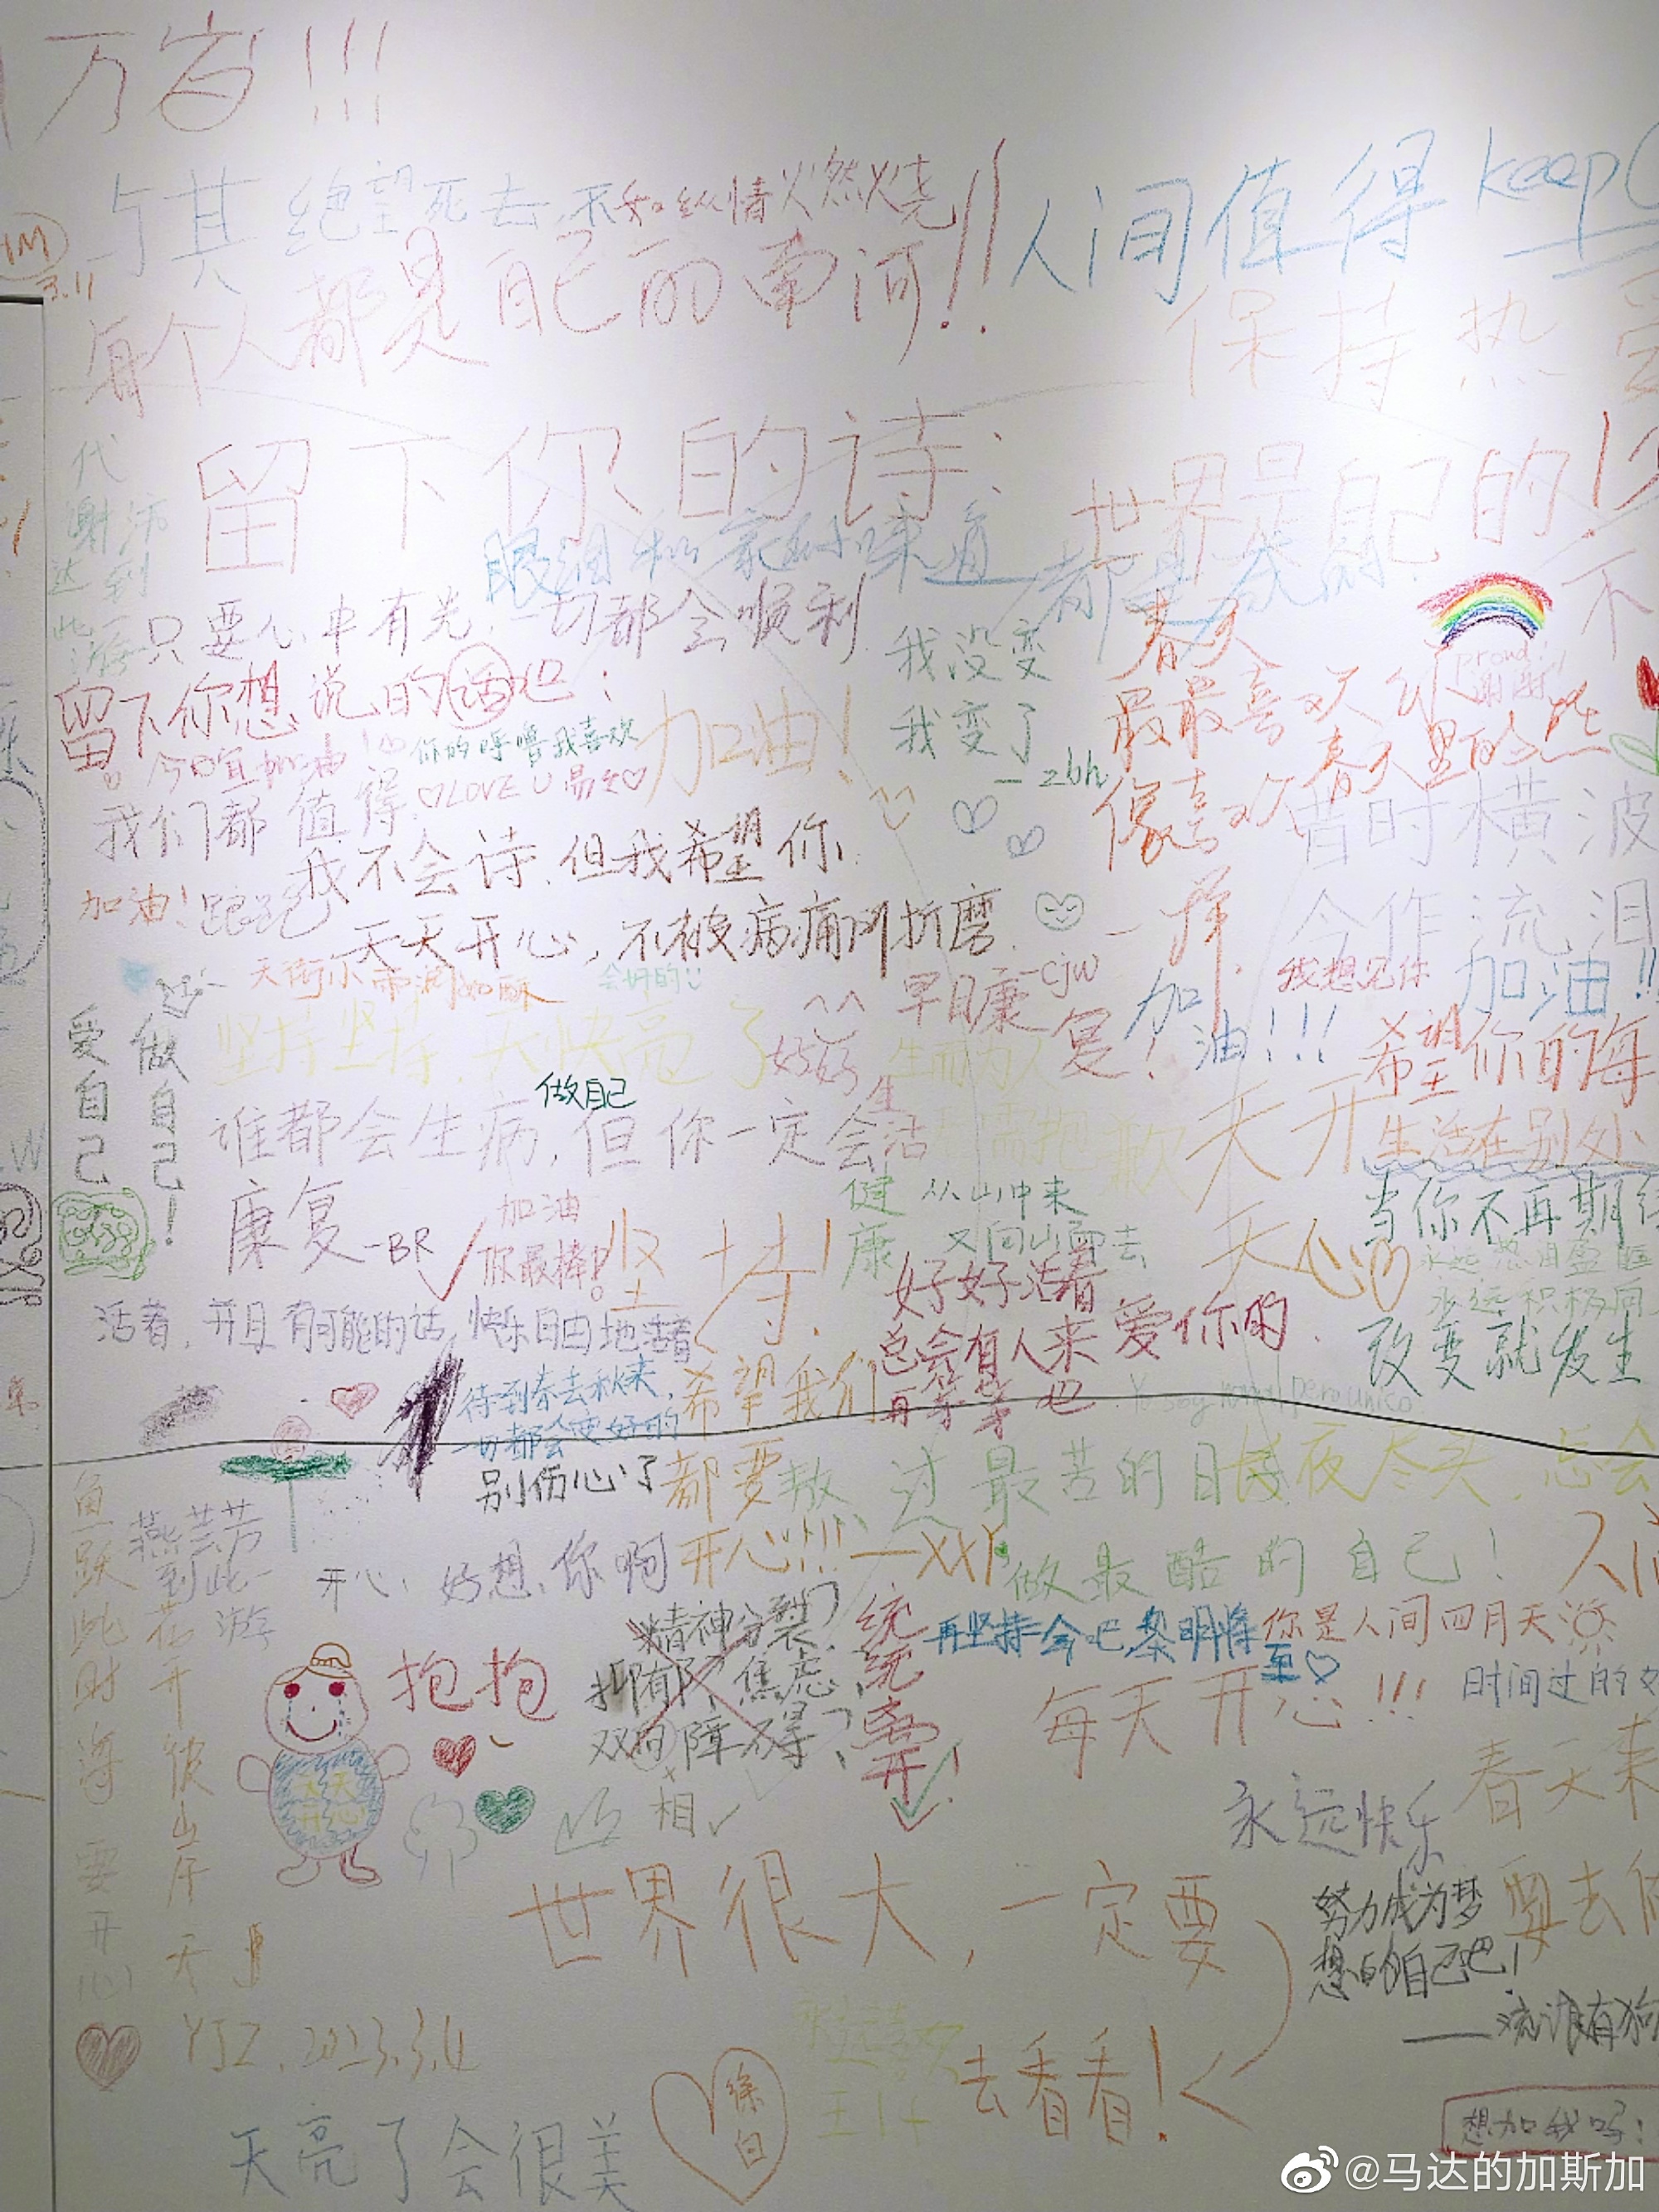 万岁!!!
与其绝望死去,不如纵情燃烧
每个人都是自己的南河!!
人间值得
keep
保持热爱
留下你的诗:
世界是自己的!
代谢汸
达到
此一游
只要心中有光 一切都会顺利
我没变
我变了
—zbh
春天
最最喜欢你
像喜欢春天里的熊
一样.
proud
谢谢
留下你想说的话吧:
今日宜加油!
你的呼噜我喜欢
LOVE U
加油!
我们都值得
我不会诗,但我希望你
天天开心,不被病痛所折磨.
昔时横波
今作流泪
加油!
天街小雨润如酥
会好的
早日康复!
—cjw
加油!!!
我想见你
加油!!
爱自己
做自己!
坚持坚持,天快亮了
好好生活
生而为人
无需抱歉
做自己
谁都会生病,但你一定会
康复—BR
希望你的每
天开
天心
生活在别处
健康
从山中来
又向山而去
加油
你最棒!
坚持!
当你不再期待
永远热泪盈眶
永远积极向
改变就发生
活着,并且有可能的话,快乐自由地活着
好好活着
总会有人来爱你的.
再等等吧
待到春去秋来,
一切都会变好的
别伤心了
希望我们
都要
开心!!!—XXY
熬过最苦的日子
做最酷的自己!
长夜尽头,总会
鱼跃此时海
花开彼山岸
要开心
燕芸芳
到此一游
开心,好想你啊
抱抱
天天开心
精神分裂?
抑郁?焦虑?
双向障碍?
相
统统离开!
再坚持会吧,黎明将至
你是人间四月天
每天开心!!!
时间过的
春天来
永远快乐
世界很大,一定要
去看看!
努力成为梦
想的自己吧!
要去
YJZ.2023.3.4
徐白
天亮了会很美
想加我吗
@马达的加斯加